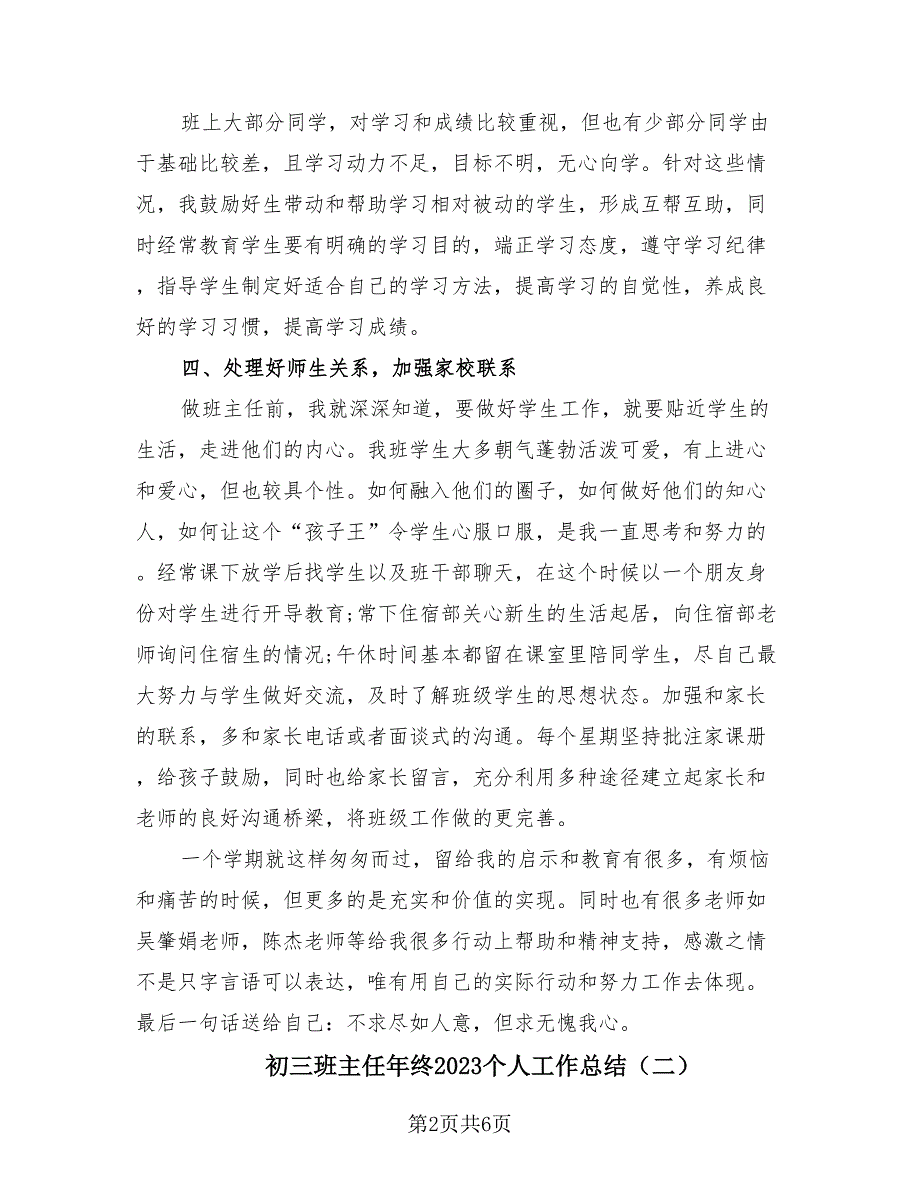 班上大部分同学，对学习和成绩比较重视，但也有少部分同学由
于基础比较差，且学习动力不足，目标不明，无心向学。针对这些情
况，我鼓励好生带动和帮助学习相对被动的学生，形成互帮互助，同
时经常教育学生要有明确的学习目的，端正学习态度，遵守学习纪律
，指导学生制定好适合自己的学习方法，提高学习的自觉性，养成良
好的学习习惯，提高学习成绩。
四、处理好师生关系，加强家校联系
做班主任前，我就深深知道，要做好学生工作，就要贴近学生的
生活，走进他们的内心。我班学生大多朝气蓬勃活泼可爱，有上进心
和爱心，但也较具个性。如何融入他们的圈子，如何做好他们的知心
人，如何让这个“孩子王”令学生心服口服，是我一直思考和努力的
。经常课下放学后找学生以及班干部聊天，在这个时候以一个朋友身
份对学生进行开导教育;常下住宿部关心新生的生活起居，向住宿部老
师询问住宿生的情况;午休时间基本都留在课室里陪同学生，尽自己最
大努力与学生做好交流，及时了解班级学生的思想状态。加强和家长
的联系，多和家长电话或者面谈式的沟通。每个星期坚持批注家课册
，给孩子鼓励，同时也给家长留言，充分利用多种途径建立起家长和
老师的良好沟通桥梁，将班级工作做的更完善。
一个学期就这样匆匆而过，留给我的启示和教育有很多，有烦恼
和痛苦的时候，但更多的是充实和价值的实现。同时也有很多老师如
吴肇娟老师，陈杰老师等给我很多行动上帮助和精神支持，感激之情
不是只字言语可以表达，唯有用自己的实际行动和努力工作去体现。
最后一句话送给自己：不求尽如人意，但求无愧我心。
初三班主任年终2023个人工作总结（二）
第2页共6页